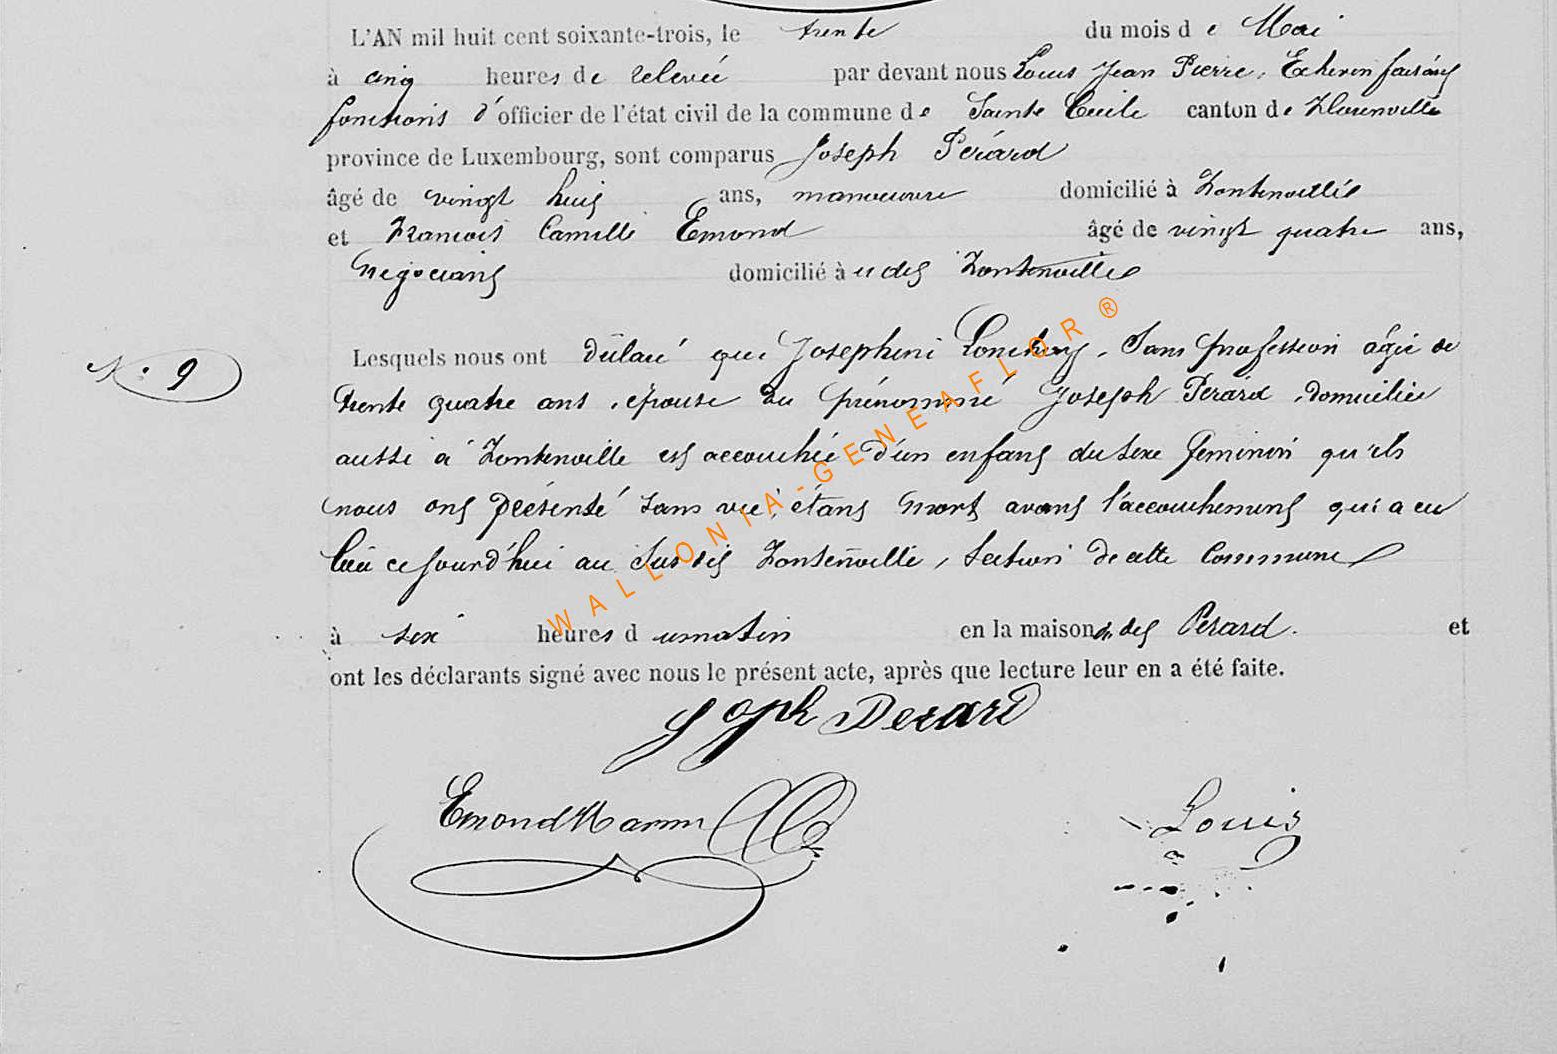 L'AN mil huit cent soixante-trois, le trente du mois de Mai
à cinq heures de relevée par devant nous Louis Jean Pierre, Echevin faisant
fonctions d'officier de l'état civil de la commune de Sainte Cecile canton de Florenville
province de Luxembourg, sont comparus Joseph Pérard
âgé de vingt huit ans, manoeuvre domicilié à Fontenoille
et Francois Camille Emond âgé de vingt quatre ans,
négociant domicilié à udit Fontenoille
N° 9
Lesquels nous ont déclaré que Josephine Lonchay, Sans profession agée de
trente quatre ans, épouse du prénommé Joseph Perard, domiciliée
aussi à Fontenoille est accouchée d'un enfant du sexe feminin qu'ils
nous ont présenté sans vie, étant mort avant l'accouchement qui a eu
lieu ce jourd'hui au Susdit Fontenoille, section de cette Commune
à six heures du matin en la maison dudit Perard. et
ont les déclarants signé avec nous le présent acte, après que lecture leur en a été faite.
Joseph Perard
Emond
Louis
WALLONIA-GENEAFLOR®